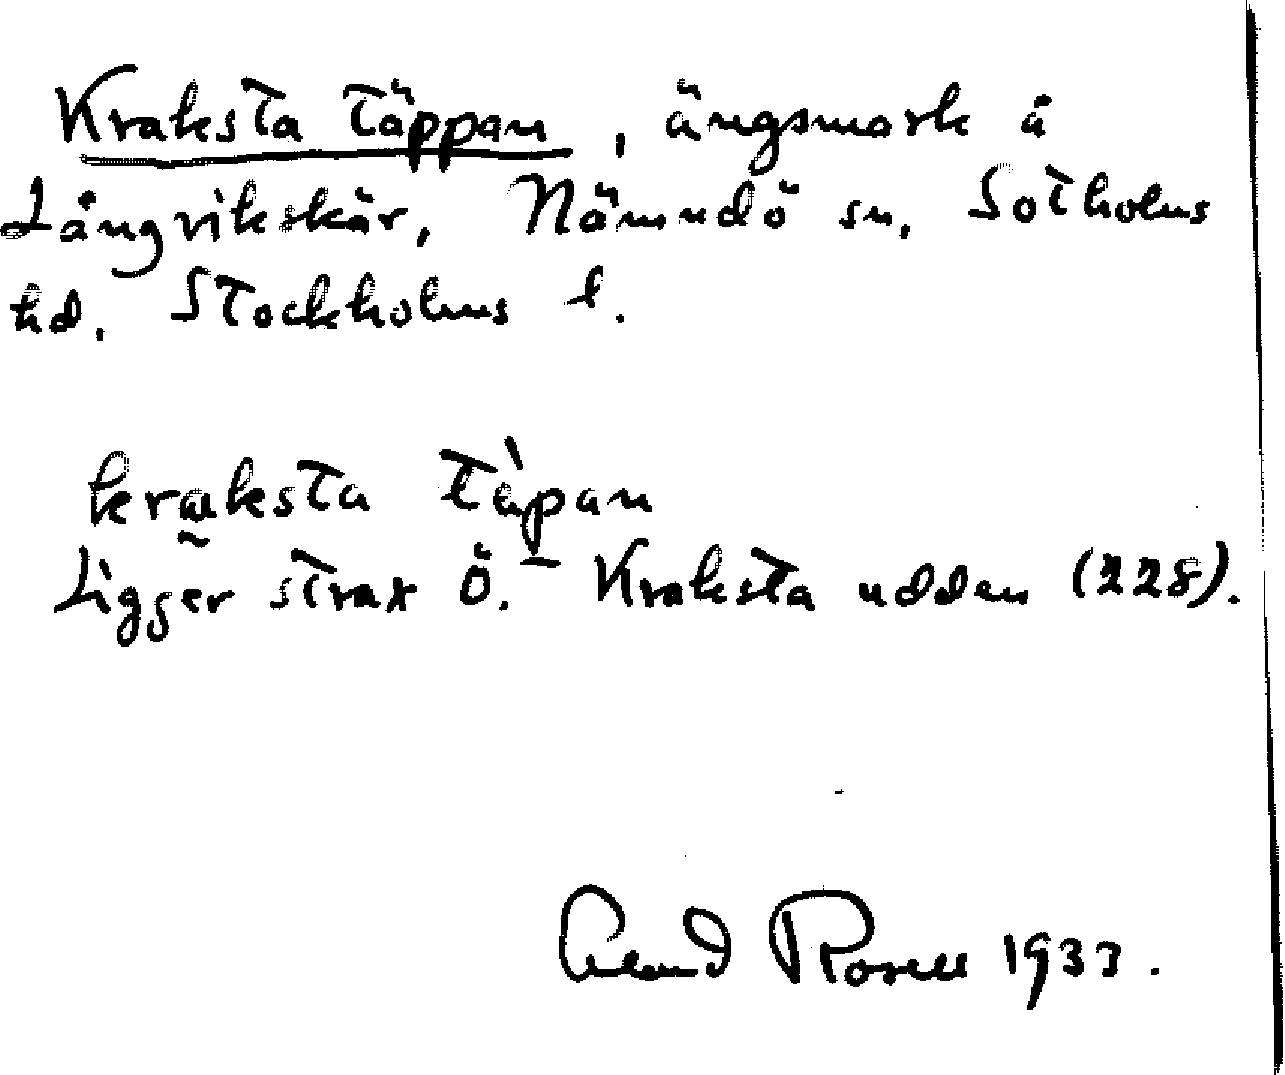 Kraksta täppan, ängsmark å
Långvikskär, Nämndö sn, Sotholms
hd. Stockholms l.
krɑksta tàpan
Ligger strax Ö. Kraksta udden (228).
Rosell 1933.